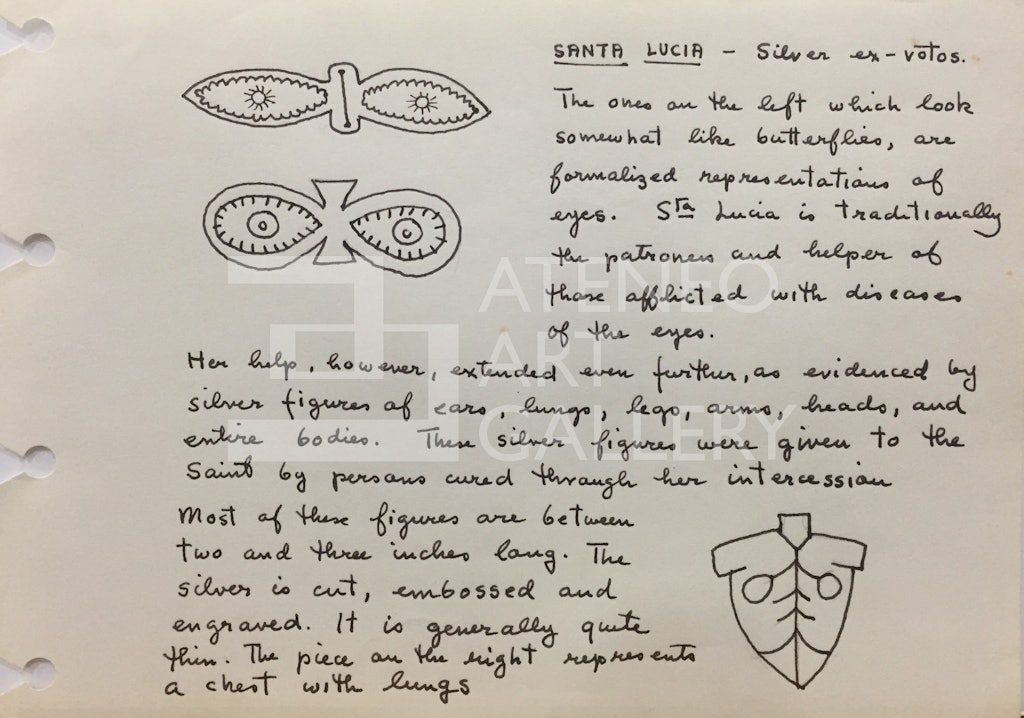 SANTA LUCIA - Silver ex-votos.
The ones on the left which look
somewhat like butterflies, are
formalized representations of
eyes. Sta Lucia is traditionally
the patroness and helper of
those afflicted with diseases
of the eyes.
Her help, however, extended even further, as evidenced by
silver figures of ears, lungs, legs, arms, heads, and
entire bodies. These silver figures were given to the
Saint by persons cured through her intercession
Most of these figures are between
two and three inches long. The
silver is cut, embossed and
engraved. It is generally quite
thin. The piece on the right represents
a chest with lungs
ATENEO
ART
GALLERY